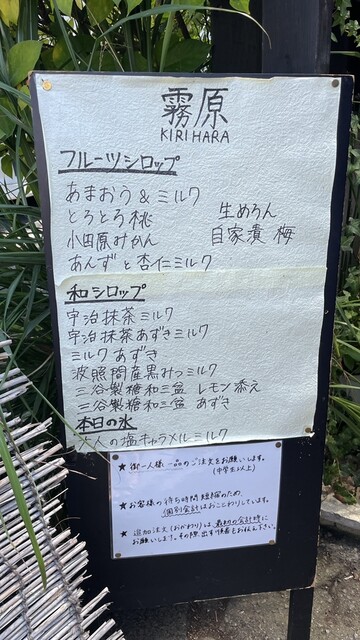 霧原
KIRIHARA
フルーツシロップ
あまおう&ミルク
とろとろ桃
生めろん
小田原みかん
自家漬 梅
あんずと杏仁ミルク
和シロップ
宇治抹茶ミルク
宇治抹茶あずきミルク
ミルクあずき
波照間産黒みつミルク
三谷製糖和三盆 レモン添え
三谷製糖和三盆 あずき
本日の氷
大人の塩キャラメルミルク
★ 御一人様一品のご注文をお願いします。
(中学生以上)
★お客様の待ち時間短縮のため、
個別会計はおことわりしています。
★ 追加注文(おかわり)は、最初の会計時に
お願いします。その際、出す順番をお伝え下さい。